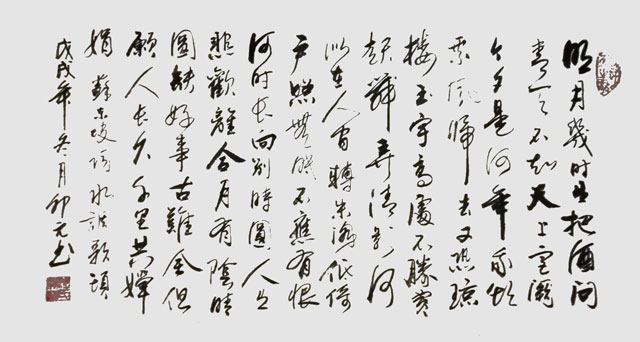 明月幾时有把酒问
青天不知天上宫阙
今夕是何年我欲
乘风歸去又恐琼
楼玉宇高處不勝寒
起舞弄清影何
似在人间轉朱阁低绮
户照無眠不應有恨
何时长向别時圓人有
悲歡離合月有陰晴
圓缺好事古難全但
願人长久千里共嬋
娟 蘇东坡词水調歌頭
戊戌年冬月 书